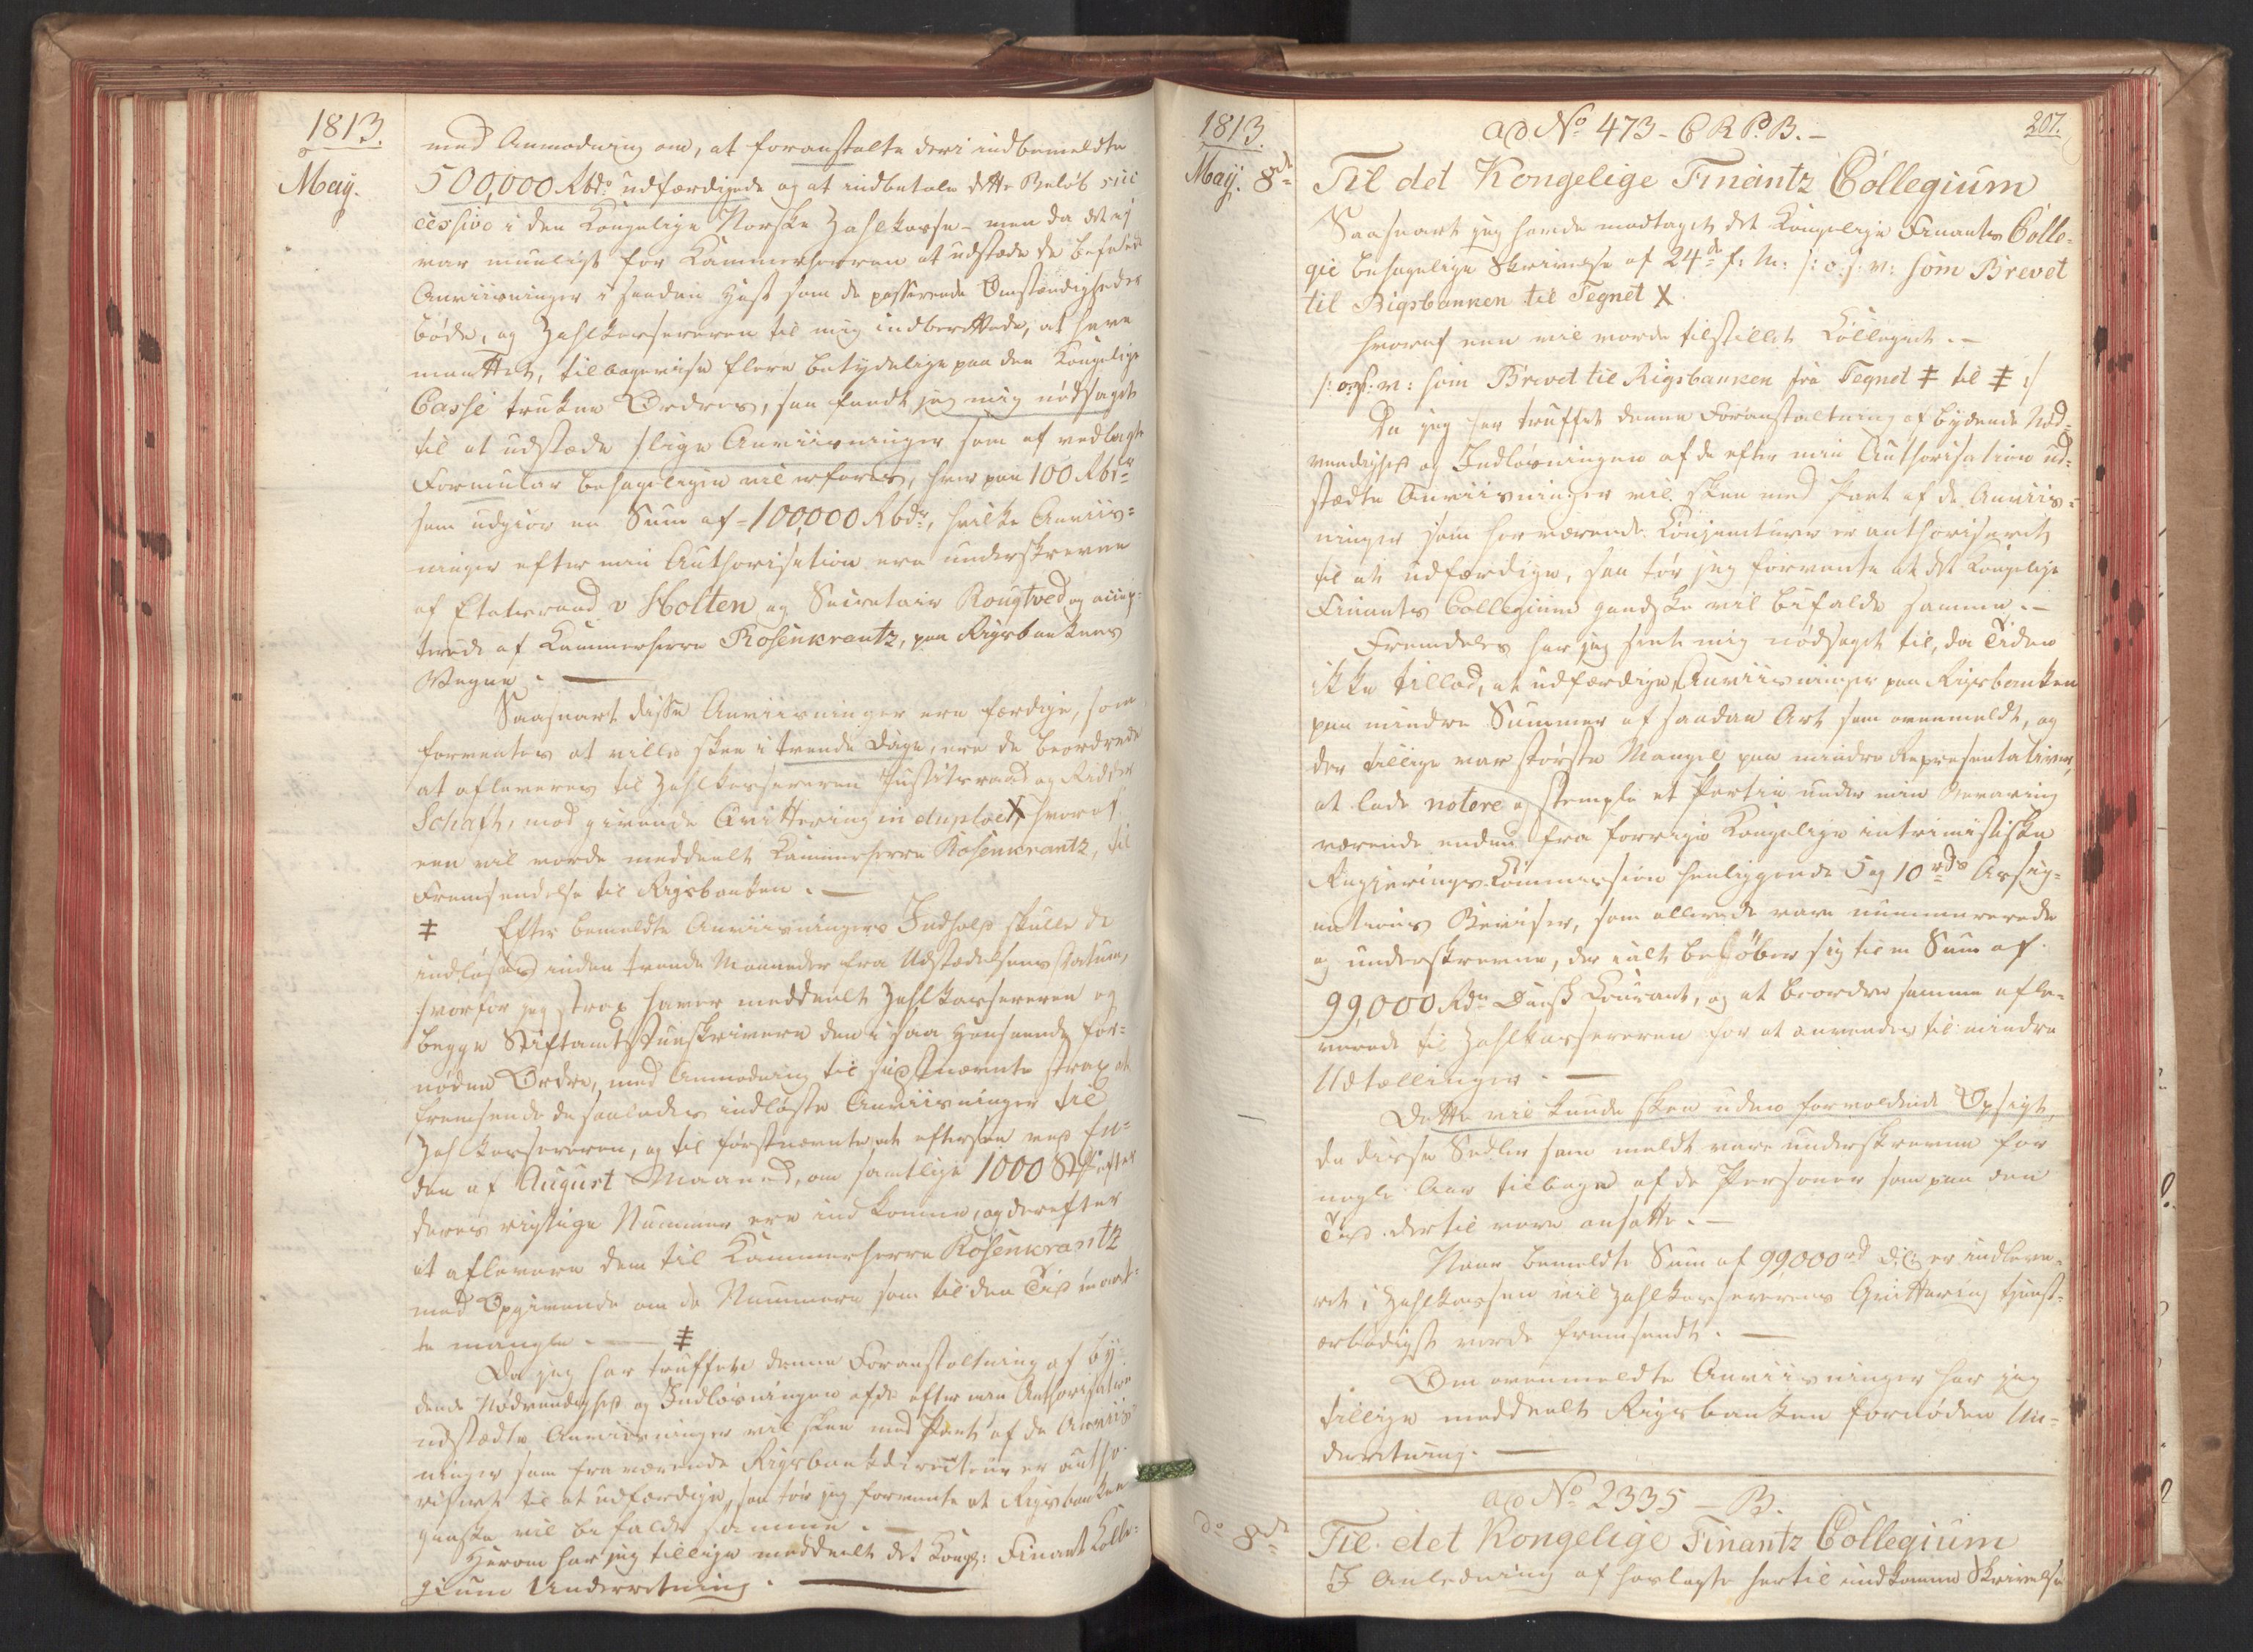 1813.
May.
med Anmodning om, at foranstalte deri indbemeldte
500,000 Rbd: udfærdigede og at indbetale dette Beløb suc
cessive i den Kongelige Norske Zahlkasse - men da det ej
var mueligt for Kammerherren at udstæde de befalede
Anviisninger i saadan Hast som de passerende Omstændigheder
bøde, og Zahlkassereren til mig indberettede, at have
maattet, tilbagevise flere betydelige paa den Kongelige
Casse trukne Ordres, saa fandt jeg mig nødsaget
til at udstæde slige Anviisninger som af vedlagte
Formular behageligen vil erfares, hver paa 100 Rbd:
som udgiør en Sum af - 100,000 Rbd:, hvilke Anviis=
ninger efter min Authorisation ere underskrevne
af Etatsraad v Holten og Secretair Rougtved og accep-
terede af Kammerherre Rosenkrantz, paa Rigsbankens
Vegne. —
Saasnart disse Anviisninger ere færdige, som
forventes at ville skee i trende Dage, ere de beordrede
at afleveres til Zahlkassereren Justitsraad og Ridder
Schaft, mod givende Qvittering in duplo X, hvoraf
een vil vorde meddeelt Kammerherre Rosenkrantz, til
Fremsendelse til Rigsbanken. —
‡ Efter bemeldte Anviisningers Indhold skulle de
indløses inden trende Maaneder fra Udstædelsens Datum,
hvorfor jeg strax haver meddeelt Zahlkassereren og
begge Stiftamtstueskrivere den i saa Henseende for=
nødne Ordre, med Anmodning til sidstnævnte strax at
fremsende de saaledes indløste Anviisninger til
Zahlkassereren, og til førstnævnte at eftersee ved En=
den af August Maaned, om samtlige 1000 St efter
deres rigtige Nummer ere indkomne, og derefter
at aflevere dem til Kammerherre Rosenkrantz
med Opgivende om de Nummere som til den Tid maat=
te mangle. — ‡
Da jeg har truffen denne Foranstaltning af by=
dende Nødvendighed og Indløsningen af de efter min Authorisation
udstædte Anviisninger vil skee med Part af de Anviis
ninger som fraværende Rigsbankdirecteur er autho-
riseret til at udfærdige, saa tør jeg forvente at Rigsbanken
ganske vil bifalde samme. —
Herom har jeg tillige meddeelt det Kongl: Finants Colle=
gium Underretning. —
1813.
May. 8de
207.
ad No 473 - C R P. B. -
Til det Kongelige Finantz Collegium
Saasnart jeg havde modtaget det Kongelige Finants Colle-
gii behagelige Skrivelse af 24de f: M: /: o: s: v: som Brevet
til Rigsbanken til Tegnet X.
hvoraf een vil vorde tilstillet Collegiet. —
/: o: s: v: som Brevet til Rigsbanken fra Tegnet ‡ til ‡ :/
Da jeg har truffet denne Foranstaltning af bydende Nød=
vendighed og Indløsningen af de efter min Authorisation ud=
stædte Anviisninger vil skee med Part af de Anviis=
ninger som herværende Conjuncturer er authoriseret
til at udfærdige, saa tør jeg forvente at det Kongelige
Finants Collegium gandske vil bifalde samme. —
Fremdeles har jeg seet mig nødsaget til, da Tiden
ikke tillod, at udfærdige Anviisninger paa Rigsbanken
paa mindre Summer af saadan Art som ovenmeldt, og
der tillige var største Mangel paa mindre Repræsentativer,
at lade notere og stemple et Partie under min Bevaring
værende endnu fra forrige Kongelige interimistiske
Regjerings-Commission henliggende 5 og 10 rds Assig=
nations Beviser, som allerede vare nummererede
og underskrevne, der ialt beløber sig til en Sum af
99,000 Rd Dansk Courant, og at beordre samme afle=
verede til Zahlkassereren for at anvendes til mindre
Udtællinger. —
Dette vil kunde skee uden forvoldende Opsigt,
da disse Sedler som meldt vare underskrevne for
nogle Aar tilbage af de Personer som paa den
Tid dertil vare ansatte. —
Naar bemeldte Sum af 99,000 rd D: C er indleve=
ret i Zahlkassen vil Zahlkassererens Qvittering tjenst=
ærbødigst vorde fremsendt. —
Om ovenmeldte Anviisninger har jeg
tillige meddeelt Rigsbanken fornøden Un=
derretning. —
do 8de
ad No 2335 - B.
Til det Kongelige Finantz Collegium
I Anledning af herlagte hertil indkomne Skrivelse